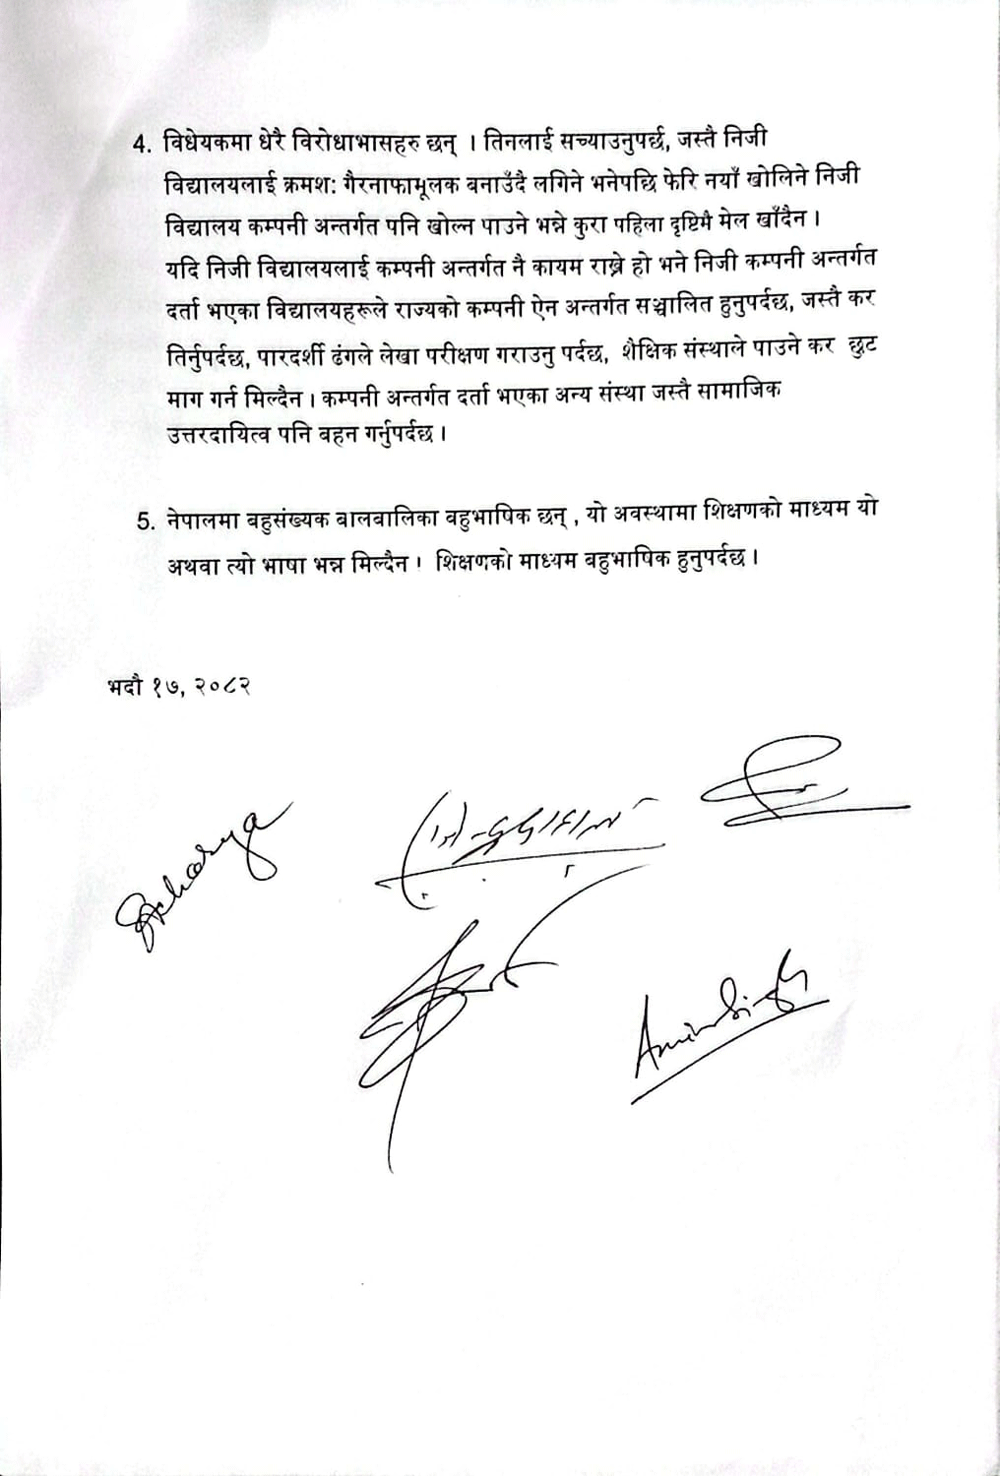 4. विधेयकमा धेरै विरोधाभासहरु छन् । तिनलाई सच्याउनुपर्छ, जस्तै निजी
विद्यालयलाई क्रमश: गैरनाफामूलक बनाउँदै लगिने भनेपछि फेरि नयाँ खोलिने निजी
विद्यालय कम्पनी अन्तर्गत पनि खोल्न पाउने भन्ने कुरा पहिला दृष्टिमै मेल खाँदैन ।
यदि निजी विद्यालयलाई कम्पनी अन्तर्गत नै कायम राख्ने हो भने निजी कम्पनी अन्तर्गत
दर्ता भएका विद्यालयहरूले राज्यको कम्पनी ऐन अन्तर्गत सञ्चालित हुनुपर्दछ, जस्तै कर
तिर्नुपर्दछ, पारदर्शी ढंगले लेखा परीक्षण गराउनु पर्दछ, शैक्षिक संस्थाले पाउने कर छुट
माग गर्न मिल्दैन । कम्पनी अन्तर्गत दर्ता भएका अन्य संस्था जस्तै सामाजिक
उत्तरदायित्व पनि बहन गर्नुपर्दछ ।
5. नेपालमा बहुसंख्यक बालबालिका वहुभाषिक छन् , यो अवस्थामा शिक्षणको माध्यम यो
अथवा त्यो भाषा भन्न मिल्दैन । शिक्षणको माध्यम बहुभाषिक हुनुपर्दछ ।
भदौ १७, २०८२